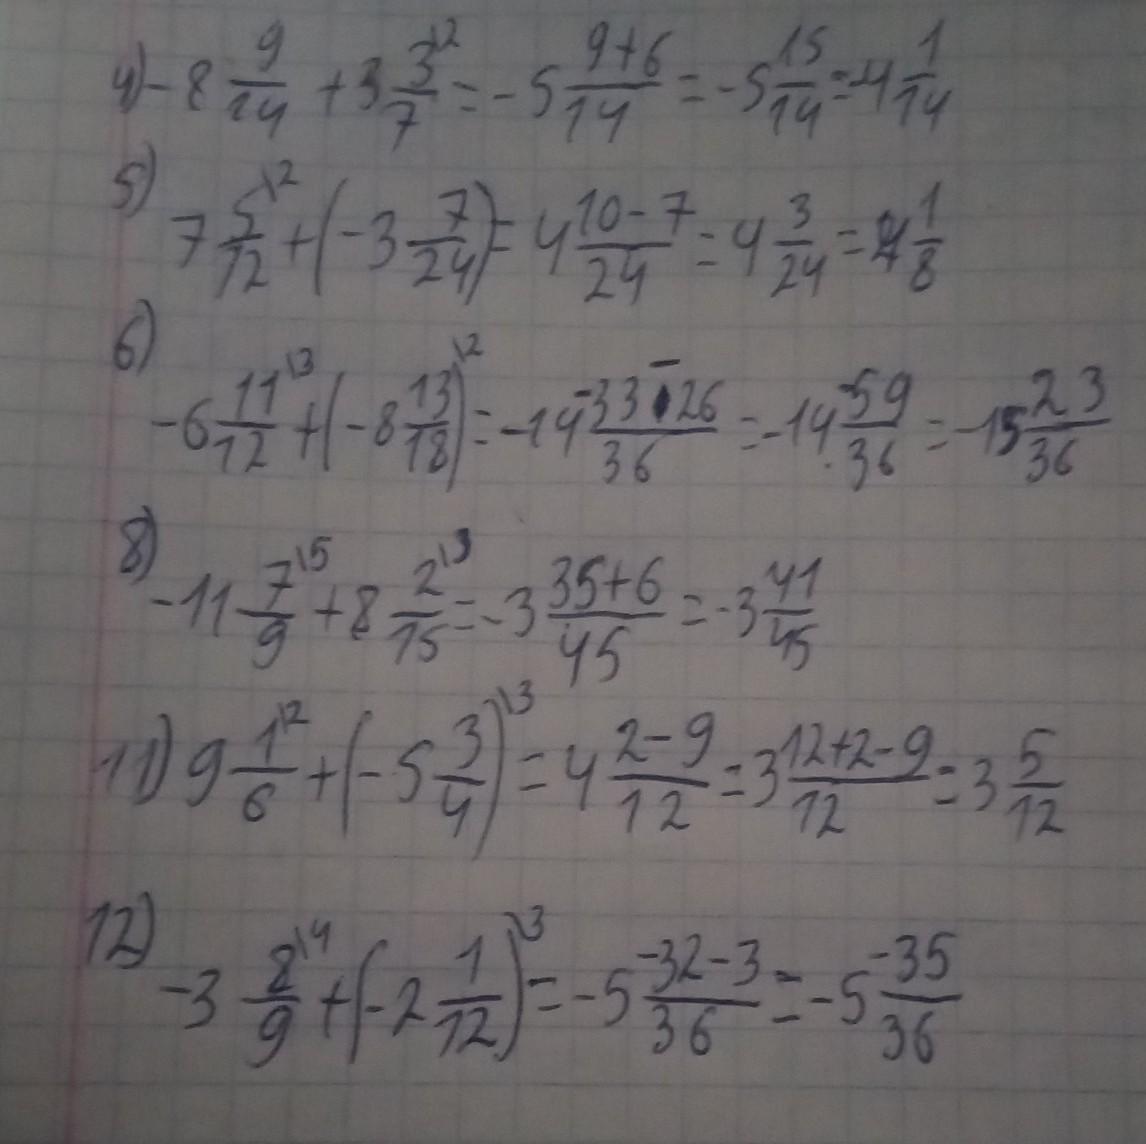 4) -8 9/14 + 3 3/7 \2 = -5 (9+6)/14 = -5 15/14 = -4 1/14
5)
7 5/12 \2 + (-3 7/24) = 4 (10-7)/24 = 4 3/24 = 4 1/8
6)
-6 11/12 \3 + (-8 13/18) \2 = -14 (-33-26)/36 = -14 -59/36 = -15 23/36
8)
-11 7/9 \5 + 8 2/15 \3 = -3 (35+6)/45 = -3 41/45
11) 9 1/6 \2 + (-5 3/4) \3 = 4 (2-9)/12 = 3 (12+2-9)/12 = 3 5/12
12)
-3 8/9 \4 + (-2 1/12) \3 = -5 (-32-3)/36 = -5 -35/36